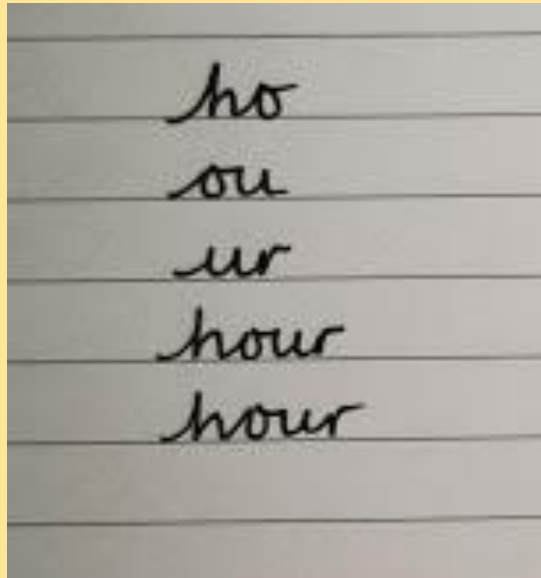 ho
ou
ur
hour
hour